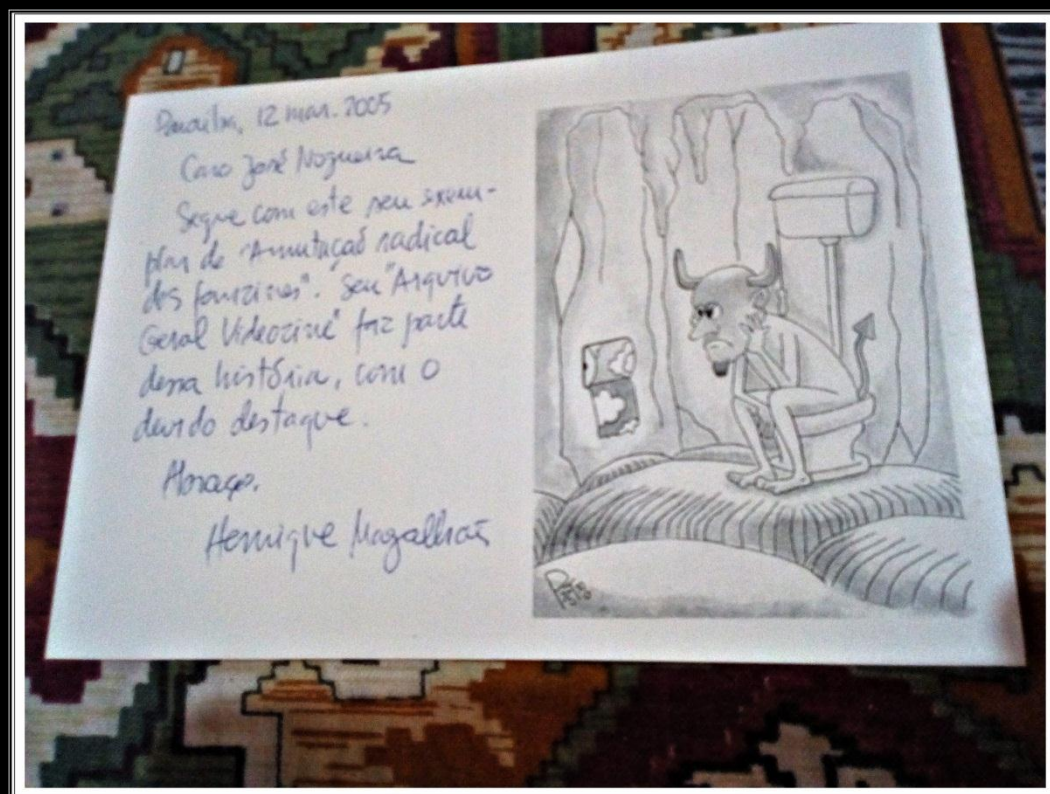 12 mar. 2005
Caro José Nogueira
Segue com este seu exem-
plar de "A mutação radical
dos fanzines". Seu "Arquivo
Geral Videozine" faz parte
dessa história, com o
devido destaque.
Abraço.
Henrique Magalhães